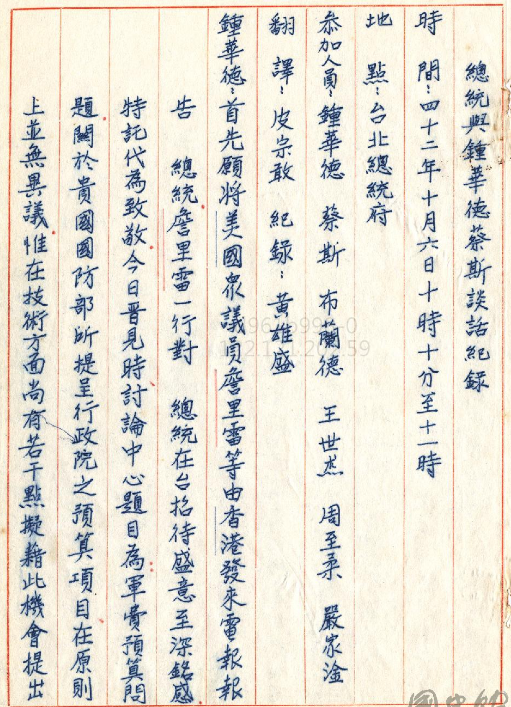 總統與鍾華德蔡斯談話紀錄
時間：四十二年十月六日十時十分至十一時
地點：台北總統府
參加人員：鍾華德 蔡斯 布蘭德 王世杰 周至柔 嚴家淦
翻譯：皮宗敢 紀錄：黃雄盛
鍾華德：首先願將美國衆議員詹里雷等由香港發來電報報
告 總統詹里雷一行對 總統在台招待盛意至深銘感
特託代為致敬今日晉見時討論中心題目為軍費預算問
題關於貴國國防部所提呈行政院之預算項目在原則
上並無異議惟在技術方面尚有若干點擬藉此機會提出